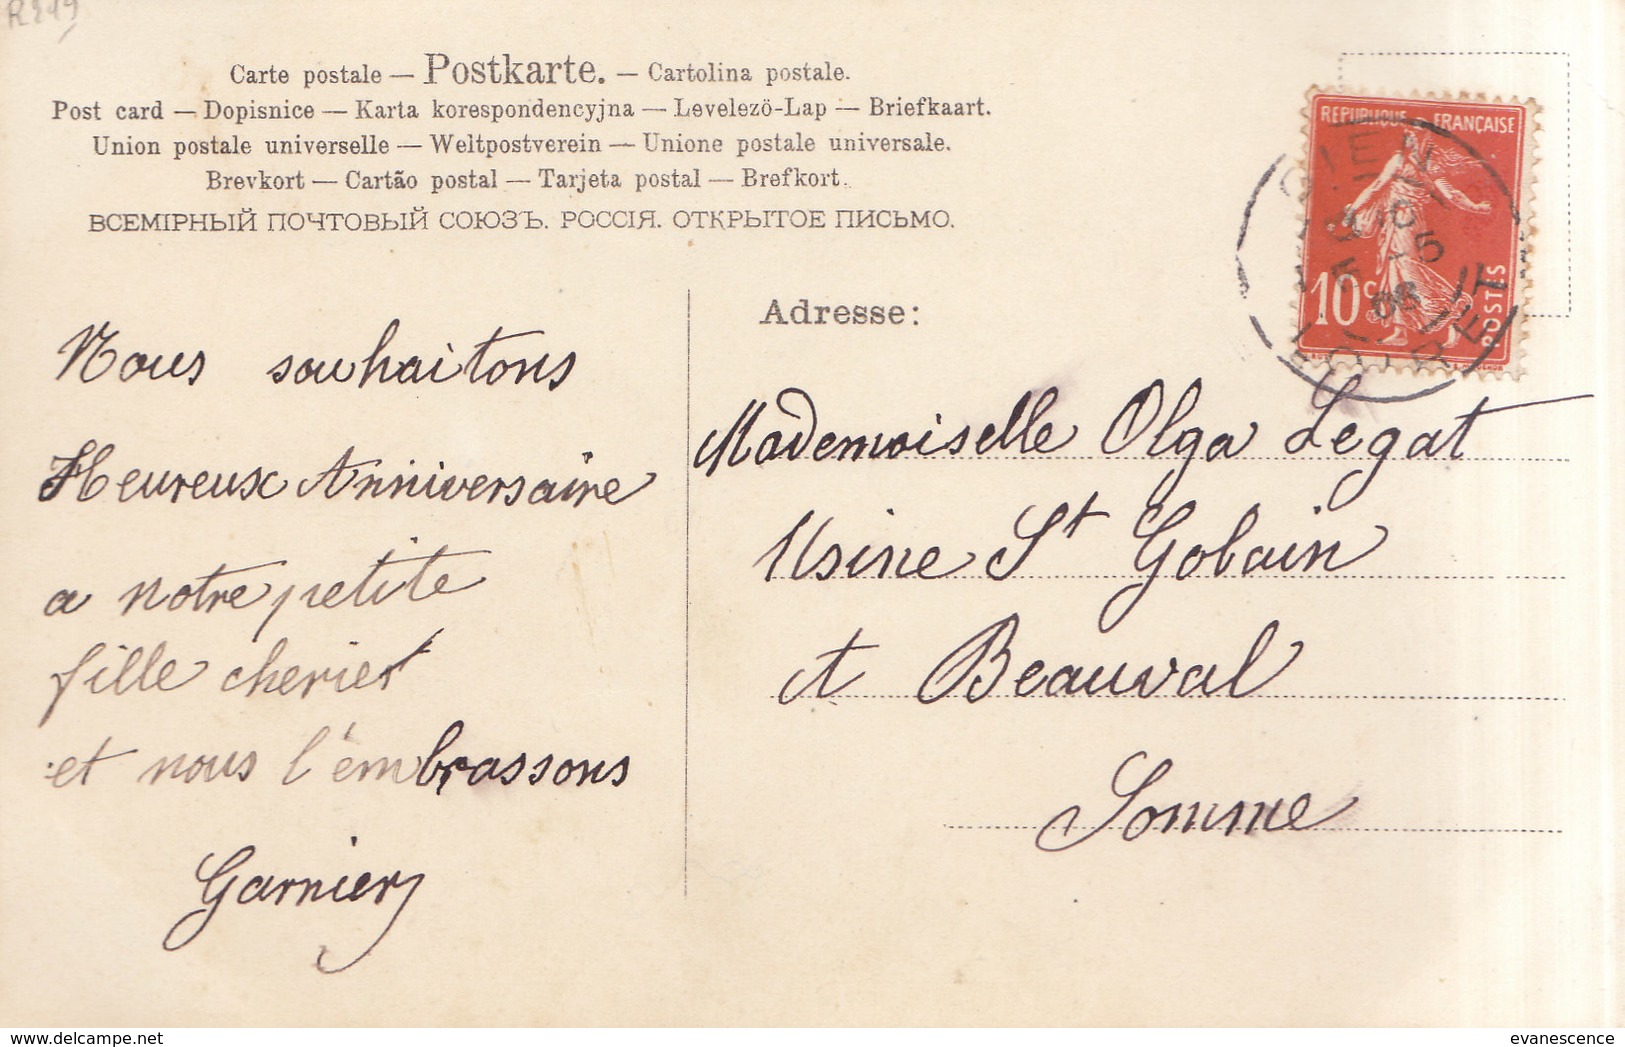 R249
Carte postale — Postkarte. — Cartolina postale.
Post card — Dopisnice — Karta korespondencyjna — Levelezö-Lap — Briefkaart.
Union postale universelle — Weltpostverein — Unione postale universale.
Brevkort — Cartão postal — Tarjeta postal — Brefkort.
ВСЕМІРНЫЙ ПОЧТОВЫЙ СОЮЗЪ. РОССІЯ. ОТКРЫТОЕ ПИСЬМО.
REPUBLIQUE FRANÇAISE
10c
POSTES
GIEN
LOIRET
Adresse:
Nous souhaitons
Heureux Anniversaire
a notre petite
fille cheriet
et nous l'embrassons
Garnier
Mademoiselle Olga Legat
Usine St Gobain
A Beauval
Somme
delcampe.net
evanescence